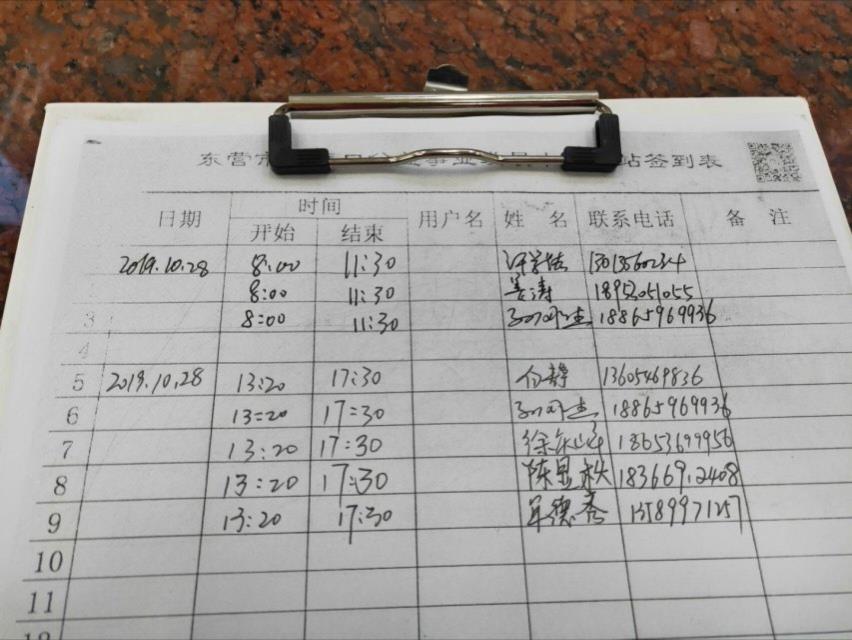 东营市 站签到表
日期 时间 用户名 姓 名 联系电话 备 注
开始 结束
2019.10.28 8:00 11:30
8:00 11:30 姜涛 18953051055
3 8:00 11:30 18865969936
4
5 2019.10.28 13:20 17:30 白静 13605469836
6 13:20 17:30 18865969936
7 13:20 17:30 徐永峰 18653699956
8 13:20 17:30 陈思秋 18366912408
9 13:20 17:30 13589971257
10
11